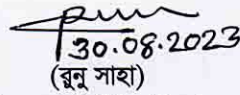 30.08.2023
(রুনু সাহা)